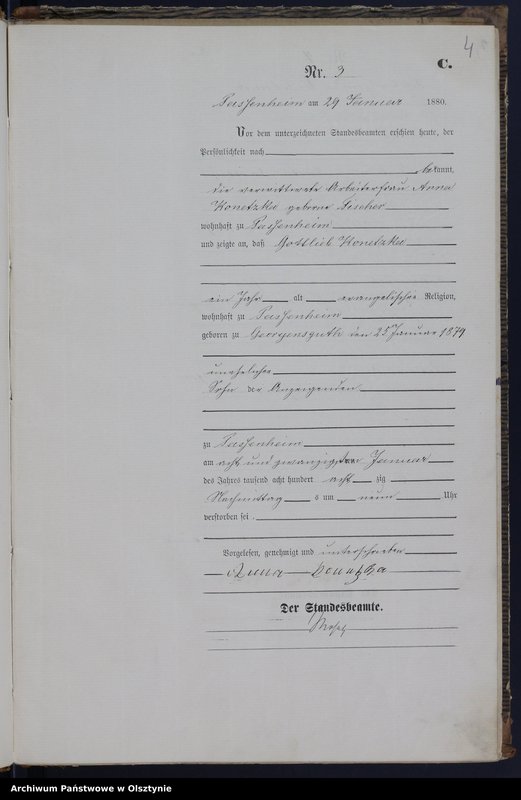 4
C.
Nr. 3
Passenheim am 29 Januar 1880.
Vor dem unterzeichneten Standesbeamten erschien heute, der
Persönlichkeit nach
bekannt,
die verwittwete Arbeiterfrau Anna
Konetzka geborne Fischer
wohnhaft zu Passenheim
und zeigte an, daß Gottlieb Konetzka
ein Jahr alt evangelischer Religion,
wohnhaft zu Passenheim
geboren zu Georgensguth den 25 Januar 1879
unehelicher
Sohn der Anzeigenden
zu Passenheim
am acht und zwanzigsten Januar
des Jahres tausend acht hundert acht zig
Nachmittag s um neun Uhr
verstorben sei.
Vorgelesen, genehmigt und unterschrieben
Anna Konetzka
Der Standesbeamte.
Archiwum Państwowe w Olsztynie